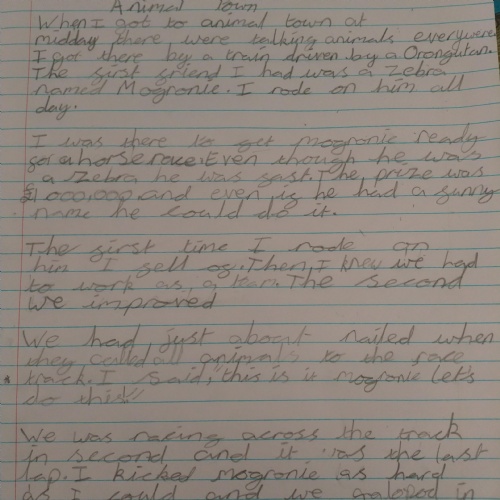 Animal town
When I got to animal town at
midday there were talking animals everywere
I got there by a train driven by a Orongutan.
The first friend I had was a Zebra
named Mogronie. I rode on him all
day.
I was there to get mogronie ready
for a horse race. Even though he was
a zebra he was fast. The prize was
$1000,000 and even if he had a funny
name he could do it.
The first time I rode on
him I fell of. Then I knew we had
to work as a team. The second
we improved
We had just about nailed when
they called all animals to the race
track. I said, this is it mogronie let's
do this"
We was racing across the track
in second and it was the last
lap. I kicked mogronie as hard
as I could and we galoped in